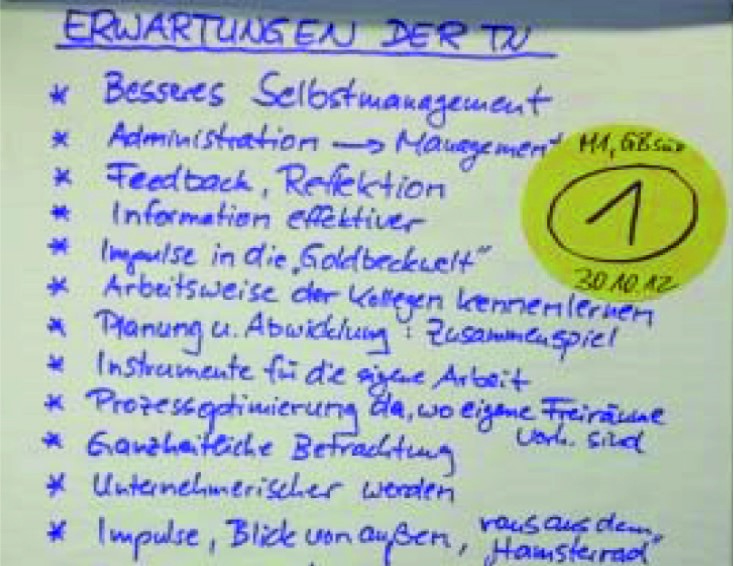 ERWARTUNGEN DER TN
* Besseres Selbstmanagement
* Administration → Management
* Feedback, Reflektion
* Information effektiver
* Impulse in die „Goldbeckwelt"
* Arbeitsweise der Kollegen kennenlernen
* Planung u. Abwicklung: Zusammenspiel
* Instrumente für die eigene Arbeit
* Prozessoptimierung da, wo eigene Freiräume
vorh. sind
* Ganzheitliche Betrachtung
* Unternehmerischer werden
* Impulse, Blick von außen, raus aus dem
„Hamsterrad"
M1, GBSüd
1
30.10.12